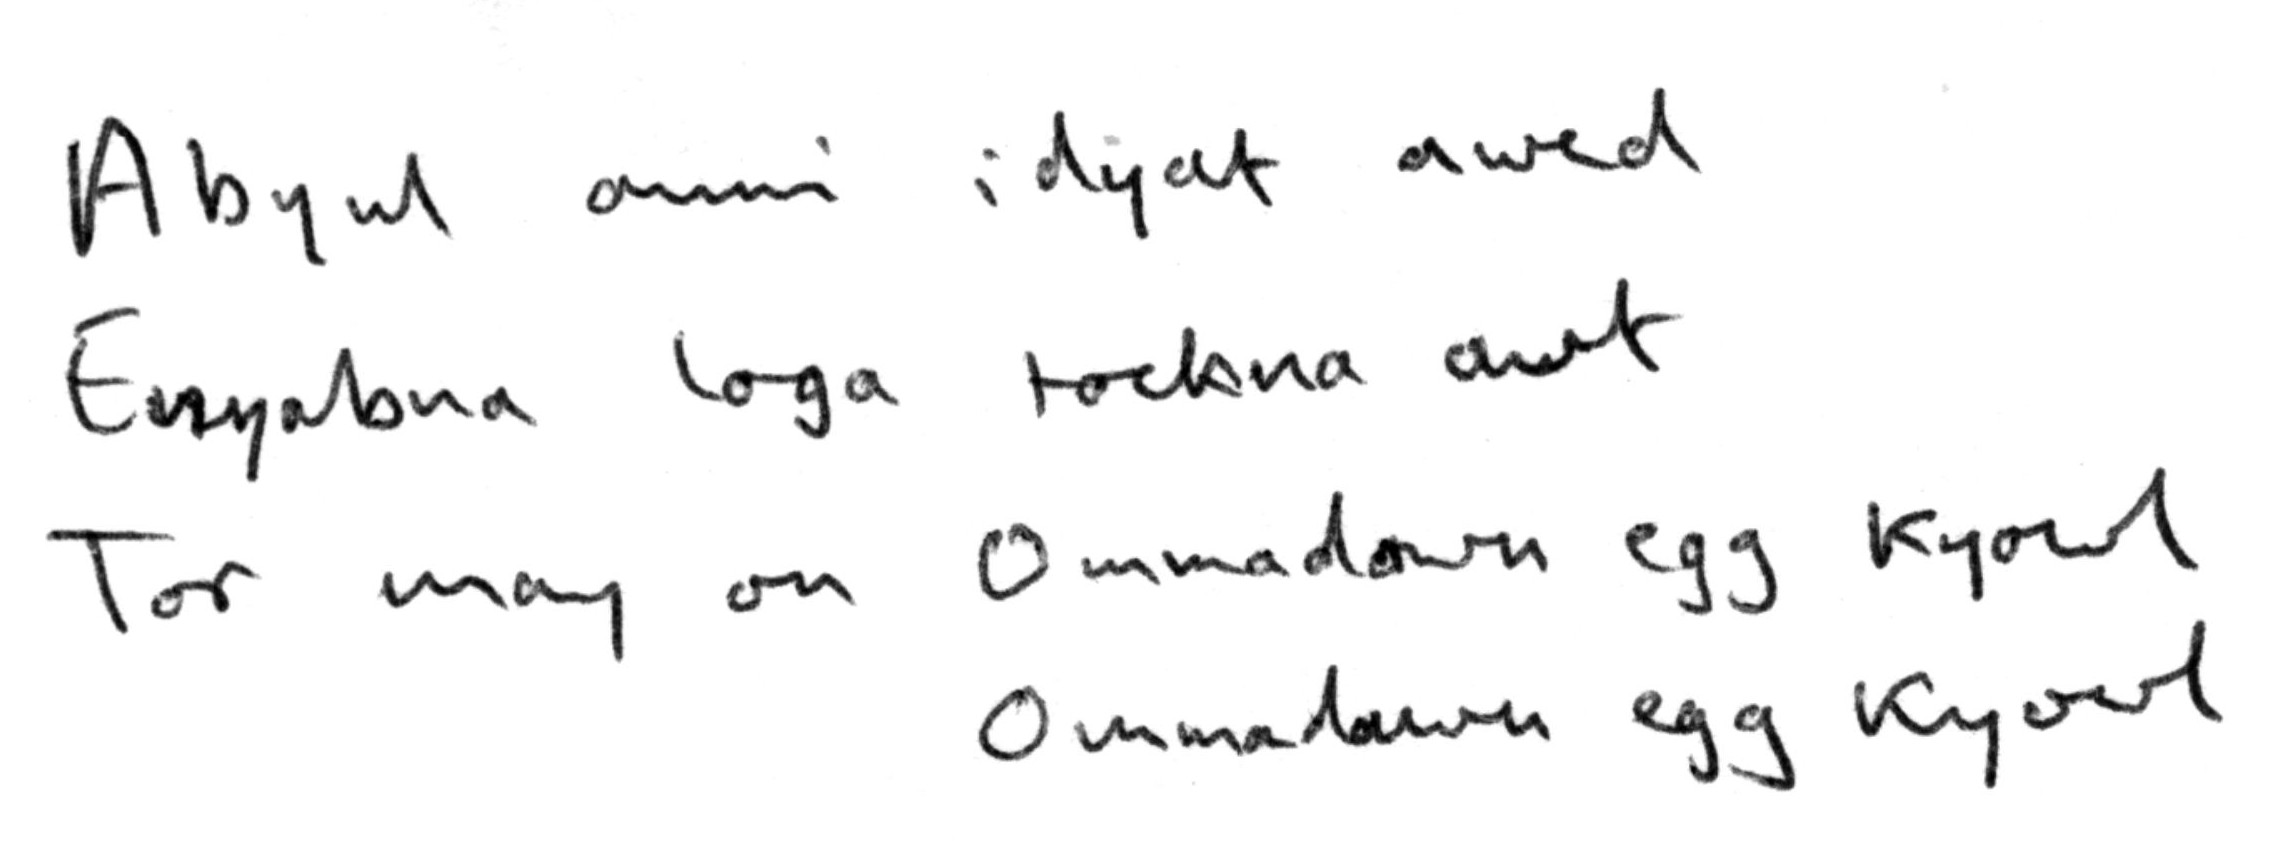 Abyul ammi idyat awed
Eezyabna loga tockna awt
Tor may on Ommadawn egg kyowl
Ommadawn egg kyowl